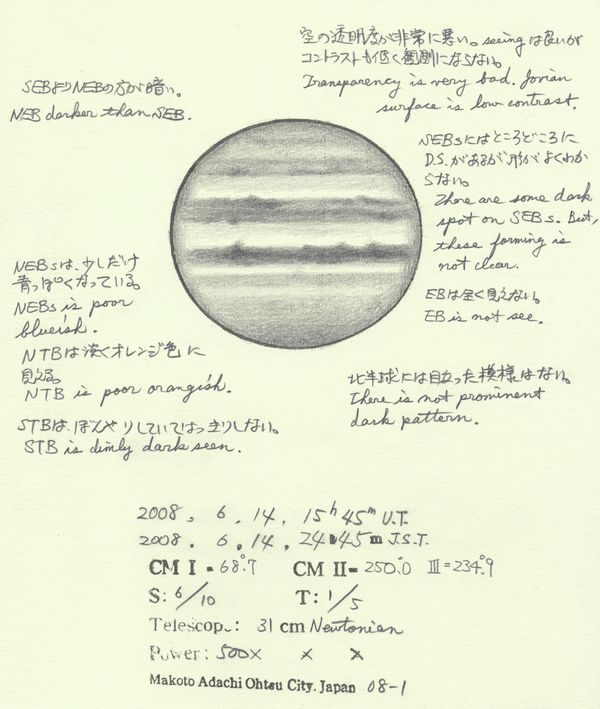 空の透明度が非常に悪い。seeingは良いが
コントラストも低く観測にならない。
Transparency is very bad. Jovian
surface is low contrast.
SEBよりNEBの方が暗い。
NEB darker than SEB.
NEBsにはところどころに
D.S.があるが形がよくわか
らない。
There are some dark
spot on SEBs. But,
these forming is
not clear.
EBは全く見えない。
EB is not see.
NEBsは、少しだけ
青っぽくなっている。
NEBs is poor
blueish.
NTBは淡くオレンジ色に
見える。
NTB is poor orangish.
STBは、ぼんやりしていてはっきりしない。
STB is dimly dark seen.
北半球には目立った模様はない。
There is not prominent
dark pattern.
2008. 6. 14. 15h 45m U.T.
2008. 6. 14. 24 45m J.S.T.
CM I = 68°.7 CM II = 250°.0 III = 234°.9
S: 6/10 T: 1/5
Telescope: 31 cm Newtonian
Power: 500× × ×
Makoto Adachi Ohtsu City. Japan 08-1